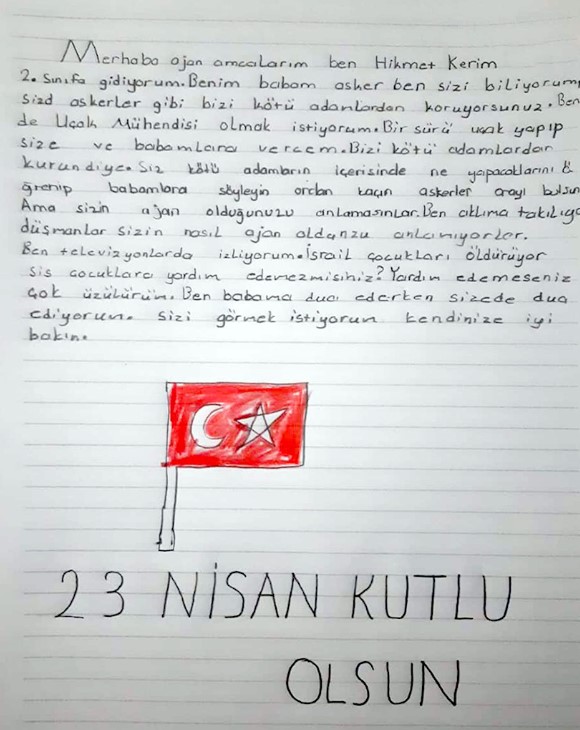 Merhaba ajan amcalarım ben Hikmet Kerim
2. sınıfa gidiyorum. Benim babam asker ben sizi biliyorum
sizd askerler gibi bizi kötü adamlardan koruyorsunuz. Ben
de Uçak Mühendisi olmak istiyorum. Bir sürü uçak yapıp
size ve babamlara vercem. Bizi kötü adamlardan
kurundiye. Siz kötü adamların içerisinde ne yapacaklarını ö
ğrenip babamlara söyleyin ordan kaçın askerler orayı bulsun
Ama sizin ajan olduğunuzu anlamasınlar. Ben aklıma takılıyo
düşmanlar sizin nasıl ajan oldanzu anlamıyorlar.
Ben televizyonlarda izliyorum. İsrail çocukları öldürüyor
sis çocuklara yardım edemezmisiniz? Yardın edemeseniz
çok üzülürün. Ben babama dua ederken sizede dua
ediyorun. sizi görmek istiyorun kendinize iyi
bakın.
23 NİSAN KUTLU
OLSUN